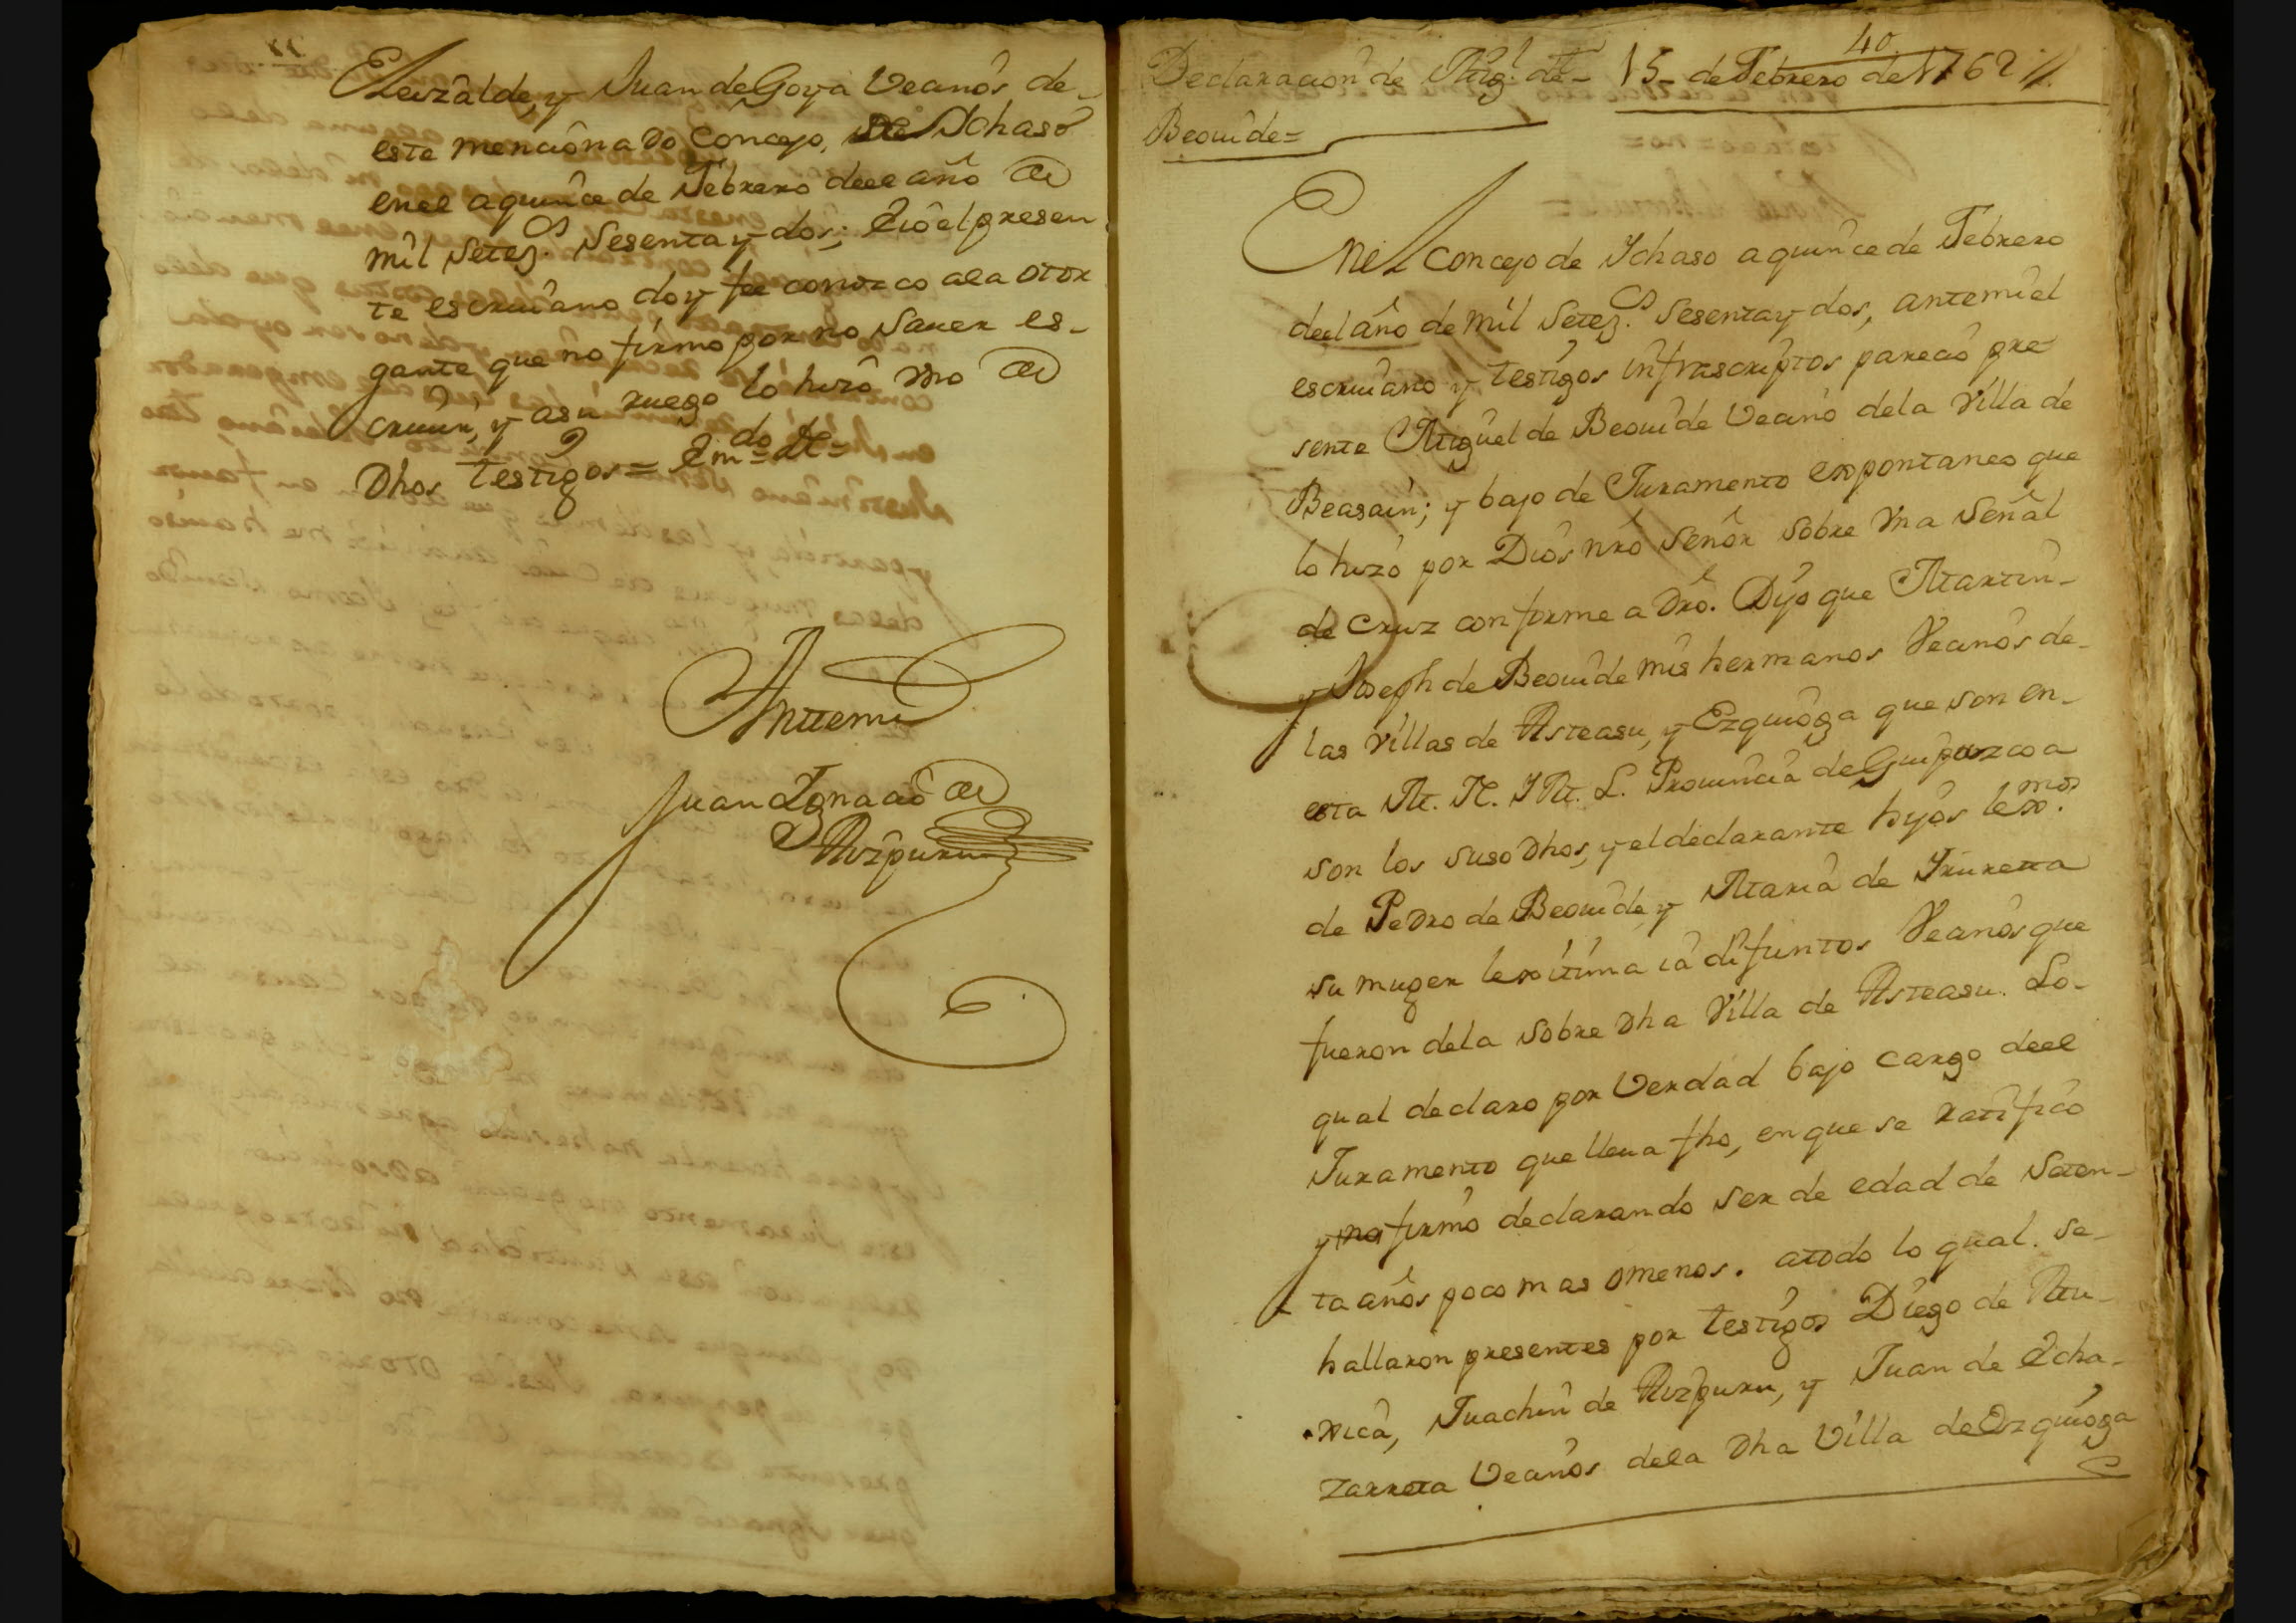 Eleizalde, y Juan de Goya Vecinôs de-
este mencionado Concejo, de Ichaso
en el a quince de Febrero deel año de
mil Setez.os Sesenta y dos; Eio el presen
te escriuano doy fee conozco a la otor
gante que no firmo por no Sauer es-
criuir, y a su ruego lo hizó Vno de
Dhos testigos = Em.do = H =
Antemi
Juan Ignacio de
Aizpuru
40
Declaracion de Mig.l de = 15- de Febrero de 1762 //.
Beouide =
En el Concejo de Ichaso a quince de Febrero
deel año de mil Setez.os Sesenta y dos, antemi el
escriuano y testigos infrascriptos pareció pre
sente Miguel de Beouide Vecino de la Villa de
Beasain; y bajo de Juramento expontaneo que
lo hizó por Diôs nrô Señor Sobre Vna Señal
de Cruz conforme a Drô. Dijo que Martin-
y Joseph de Beouide mis hermanos Vecinôs de-
las Villas de Asteasu, y Ezquioga que son en-
esta M. N. Y M. L. Prouincia de Guipuzcoa
son los suso Dhos, y el declarante hijos lex.mos
de Pedro de Beouide, y Maria de Irureta
su muger lexitima iâ difuntos Vecinôs que
fueron de la Sobre Dha Villa de Asteasu. Lo-
qual declaro por Verdad bajo cargo deel
Juramento que lleua fho, en que se ratificó
y no firmó declarando ser de edad de Seten-
ta años poco mas o menos. a todo lo qual. se-
hallaron presentes por testigos Diego de Mu-
xica, Juachin de Aizpuru, y Juan de Echa-
zarreta Vecinôs de la Dha Villa de Ezquioga